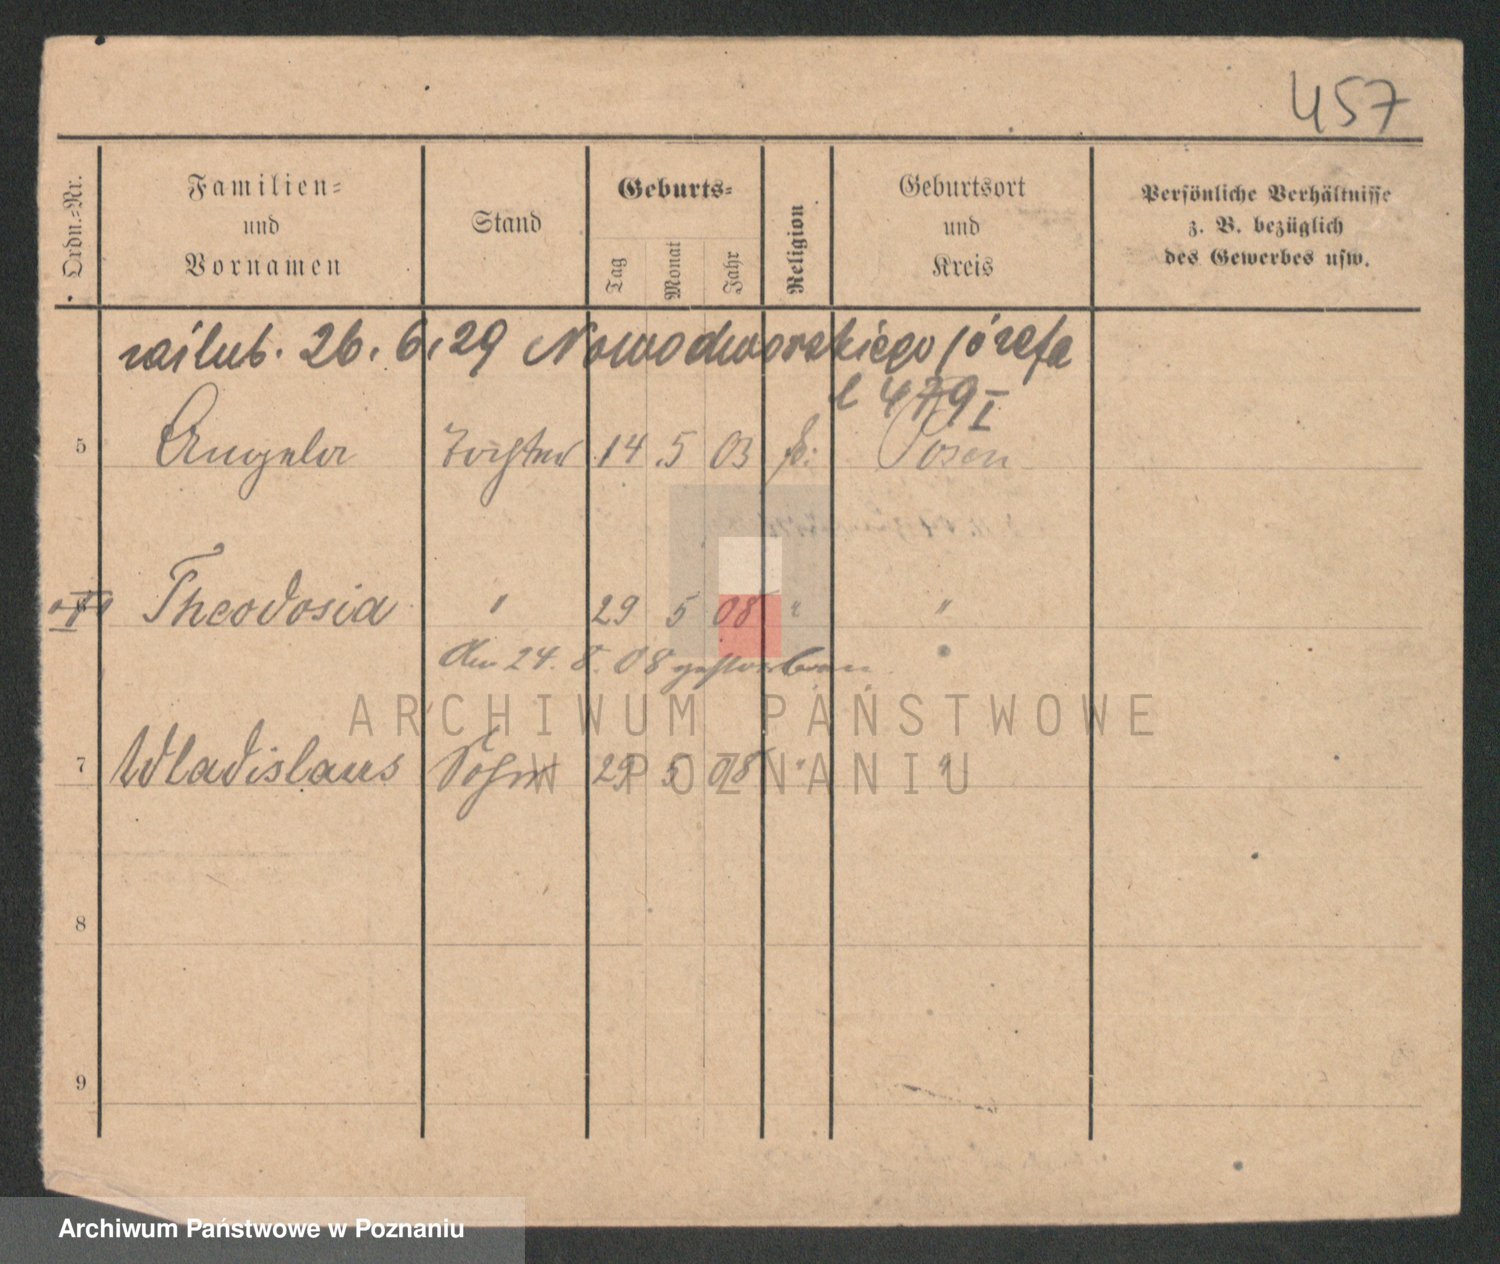 457
Ordn.-Nr.
Familien-
und
Vornamen
Stand
Geburts-
Tag
Monat
Jahr
Religion
Geburtsort
und
Kreis
Persönliche Verhältnisse
z. B. bezüglich
des Gewerbes usw.
zaślub. 26.6.29 Nowodworskiego Józefa
l 479 I
5 Angela Tochter 14 5 03 k. Posen
Theodosia " 29 5 08 " "
den 24. 8. 08 gestorben
7 Wladislaus Sohn 29 5 08 " "
8
9
ARCHIWUM PAŃSTWOWE
W POZNANIU
Archiwum Państwowe w Poznaniu